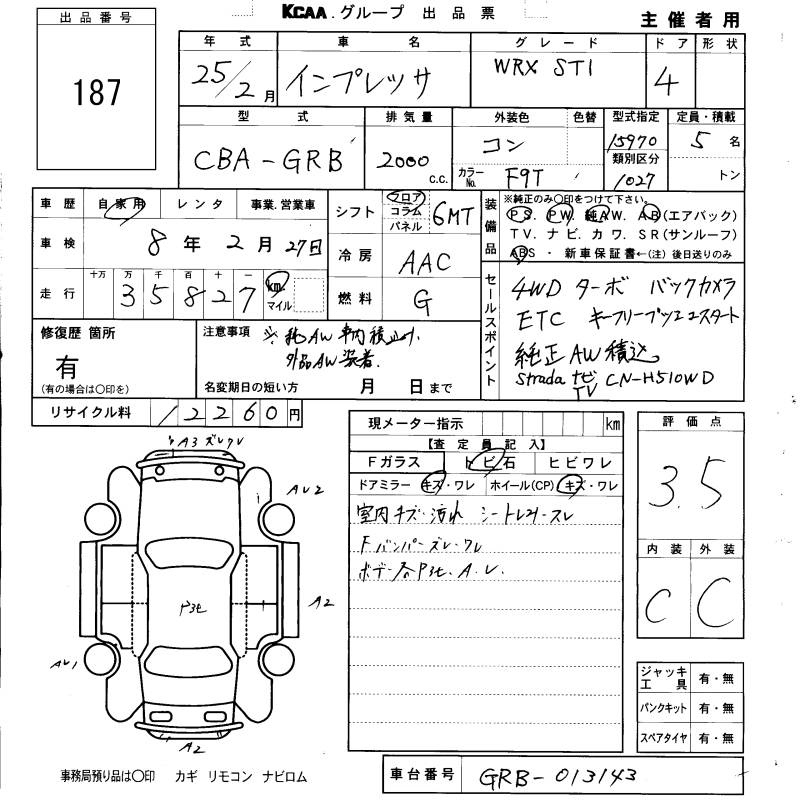 KCAA グループ 出品票
主催者用
出品番号
187
年式 車名 グレード ドア 形状
25/2月 インプレッサ WRX STI 4
型式 排気量 外装色 色替 型式指定 定員・積載
CBA-GRB 2000 c.c. コン 15970 5 名
カラーNo. F9T 類別区分 1027 トン
車歴 自家用 レンタ 事業.営業車
シフト フロア コラム パネル 6MT
装備品 ※純正のみ〇印をつけて下さい。
PS. PW. 純AW. AB(エアバック)
TV. ナビ. カワ. SR(サンルーフ)
ABS ・ 新車保証書←(注)後日送りのみ
車検 8年 2月 27日
冷房 AAC
走行 十万 万 千 百 十 一
35827 km マイル
燃料 G
セールスポイント 4WD ターボ バックカメラ
ETC キーフリープッシュスタート
純正AW積込
Strada ナビ TV CN-H510WD
修復歴 箇所
有
(有の場合は〇印を)
注意事項 ※純AW車内積込み.
外品AW装着.
名変期日の短い方 月 日まで
リサイクル料 12260円
現メーター指示 km
【査定員記入】
Fガラス トビ石 ヒビワレ
ドアミラー キズ・ワレ ホイール(CP) キズ・ワレ
室内キズ・汚れ シート
Fバンパーズレ・ワレ
A.U.
評価点
3.5
内装 外装
C C
A3ズレワレ
AU2
A2
AU1
A2
ジャッキ工具 有・無
パンクキット 有・無
スペアタイヤ 有・無
事務局預り品は〇印 カギ リモコン ナビロム
車台番号 GRB-013143